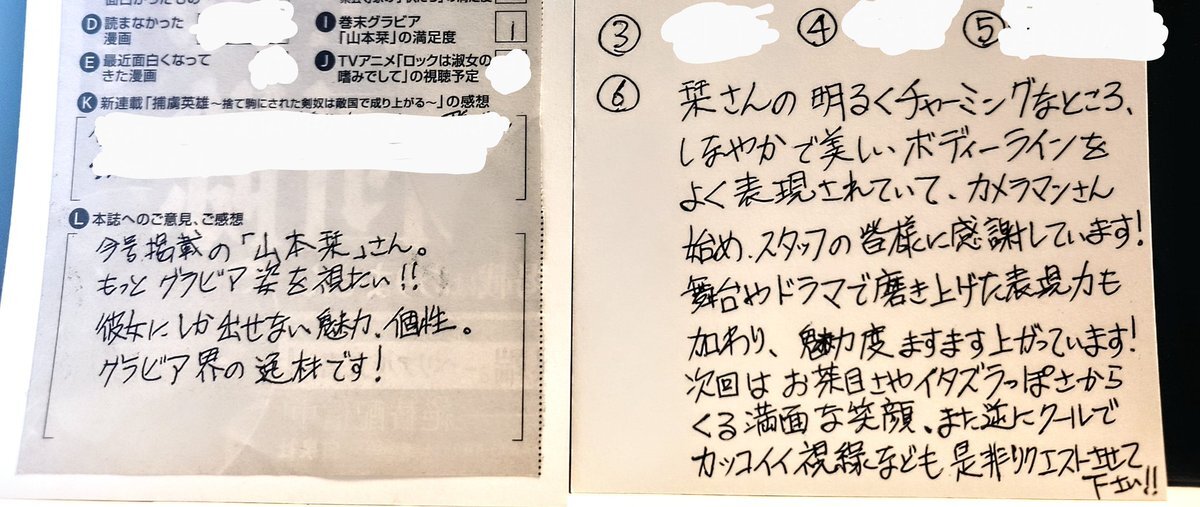 D 読まなかった
漫画
E 最近面白くなって
きた漫画
I 巻末グラビア
「山本栞」の満足度
1
J TVアニメ「ロックは淑女の
嗜みでして」の視聴予定
K 新連載「捕虜英雄～捨て駒にされた剣奴は敵国で成り上がる～」の感想
L 本誌へのご意見、ご感想
今号掲載の「山本栞」さん。
もっとグラビア姿を視たい!!
彼女にしか出せない魅力、個性。
グラビア界の逸材です!
③ ④ ⑤
⑥ 栞さんの明るくチャーミングなところ、
しなやかで美しいボディーラインを
よく表現されていて、カメラマンさん
始め、スタッフの皆様に感謝しています!
舞台やドラマで磨き上げた表現力も
加わり、魅力度ますます上がっています!
次回はお茶目さやイタズラっぽさから
くる満面な笑顔、また逆にクールで
カッコイイ視線なども是非リクエストさせて
下さい!!